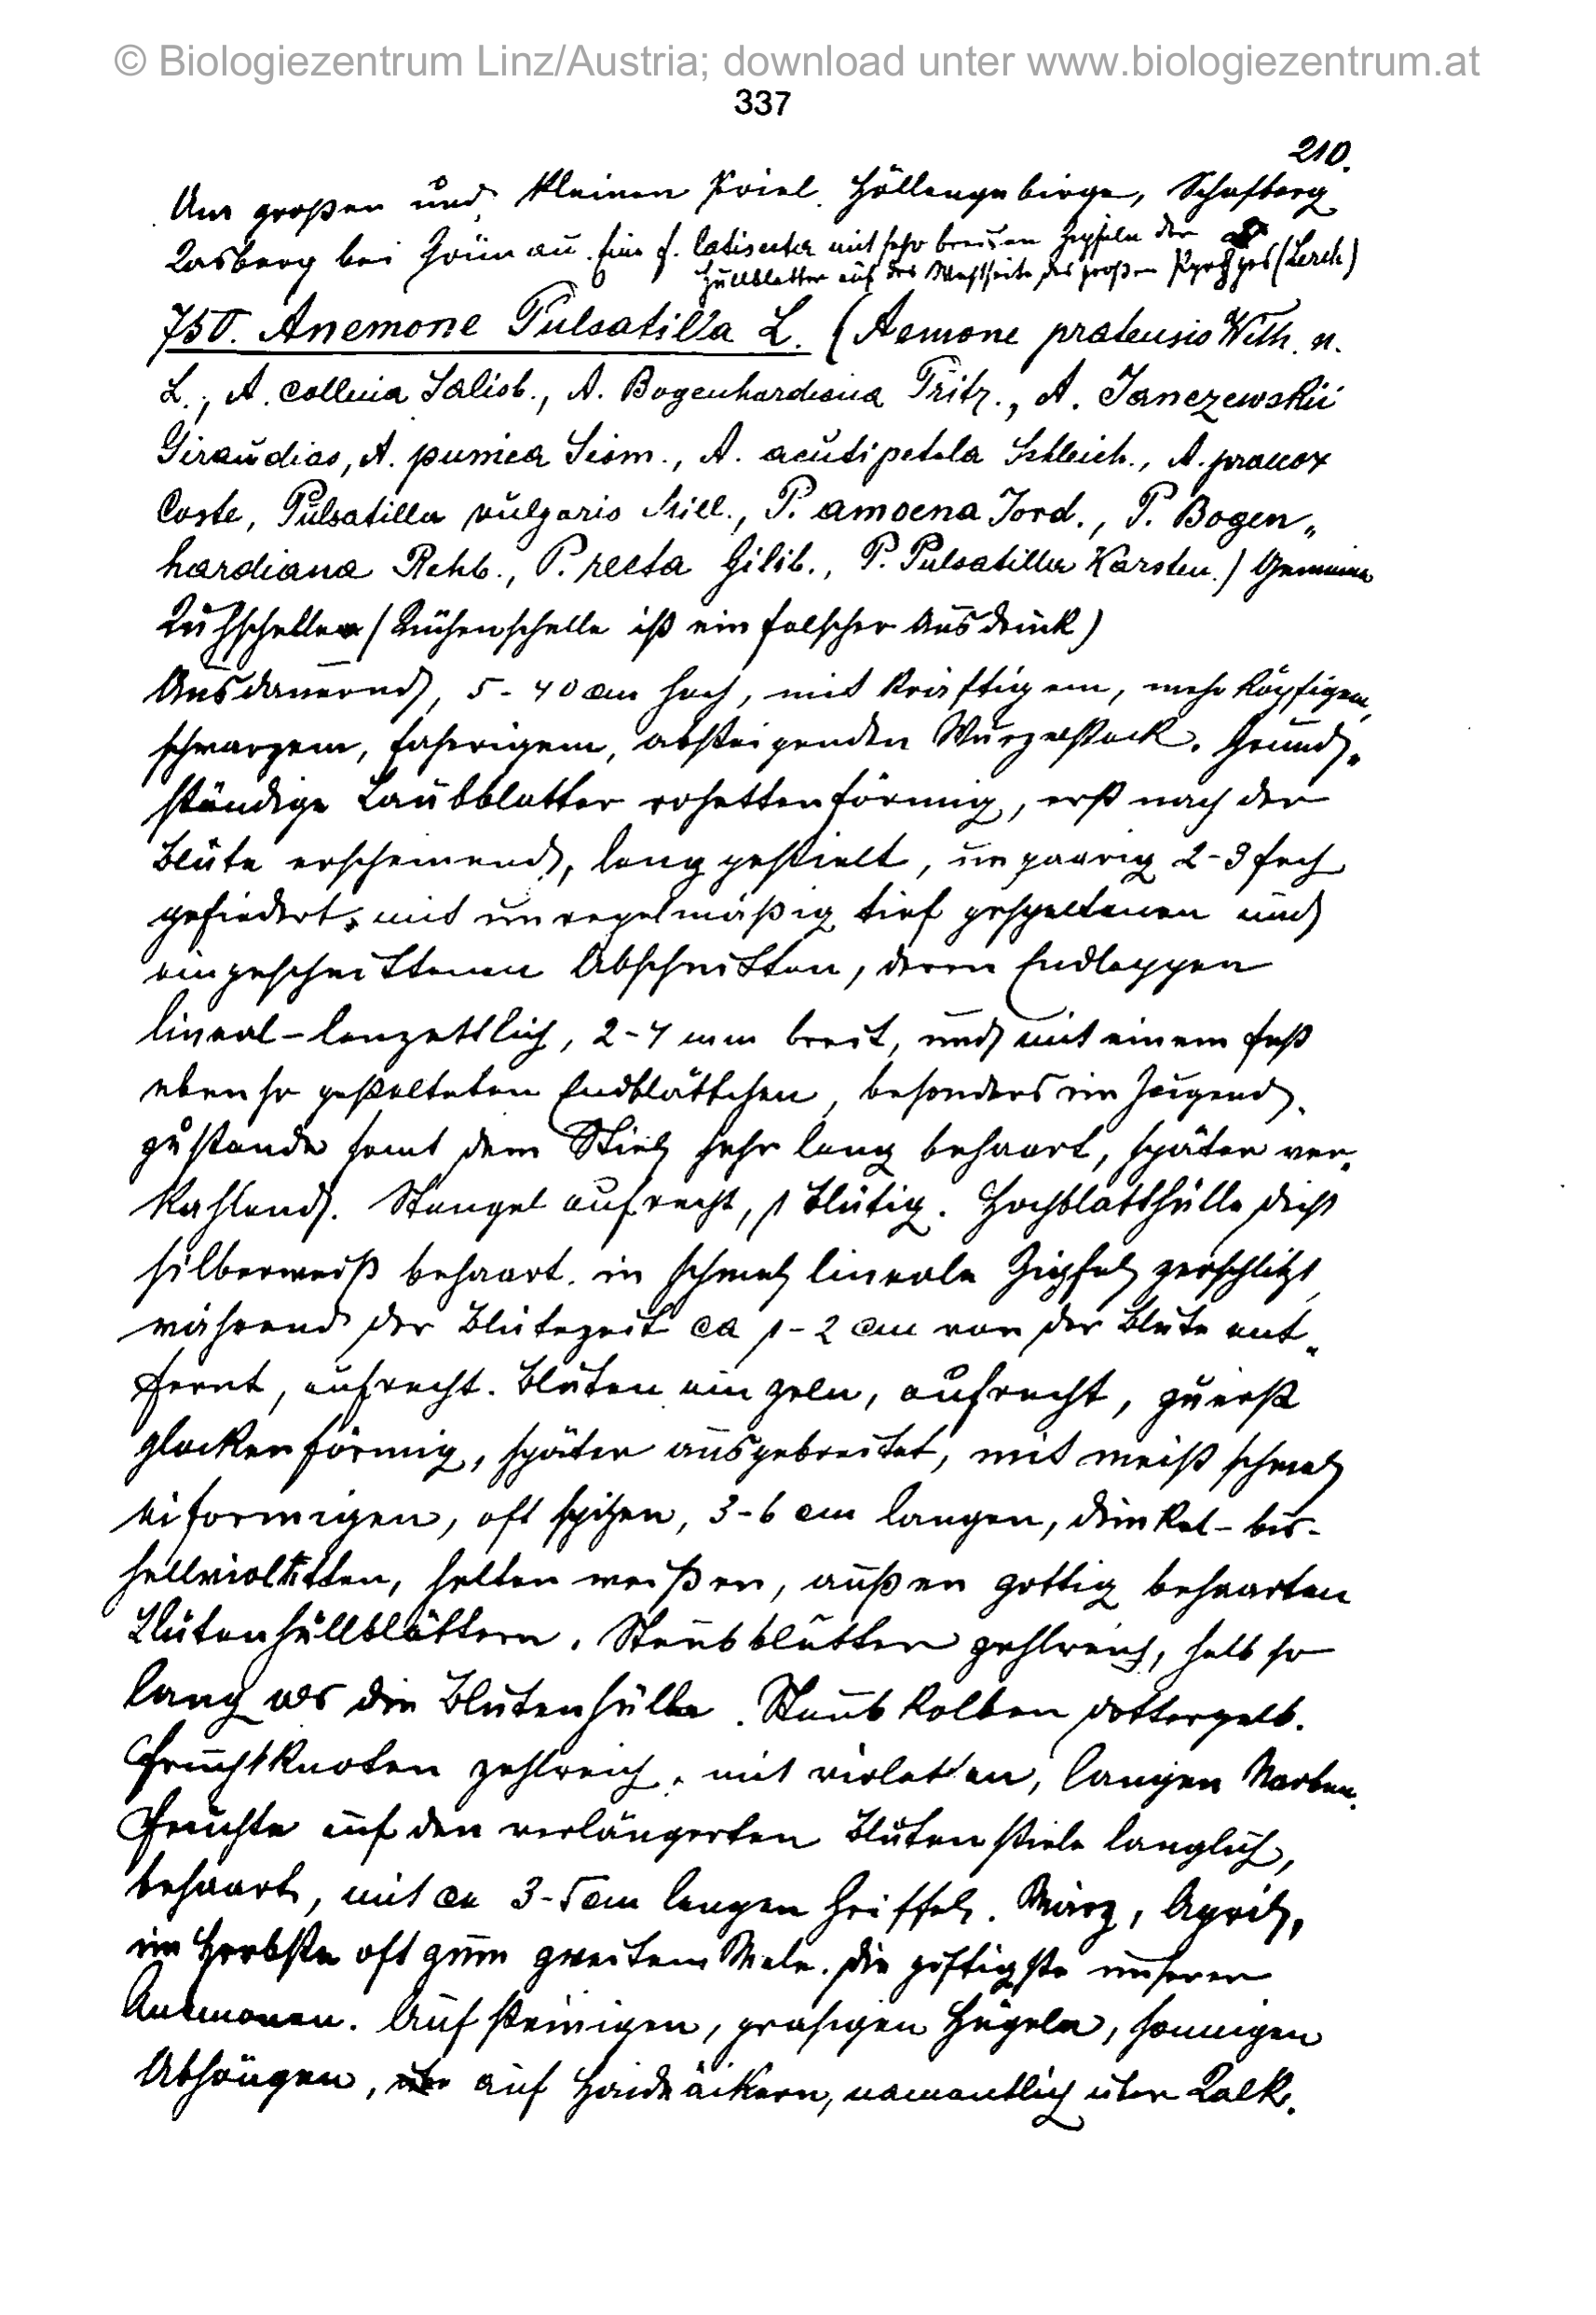 © Biologiezentrum Linz/Austria; download unter www.biologiezentrum.at
337
210.
Am großen und kleinen Priel. Höllengebirge, Schafberg
Kasberg bei Grünau. Eine f. latisecta mit sehr breiten Zipfeln der
Hüllblätter auf der Westseite des großen Pyrhgas (Lerch)
750. Anemone Pulsatilla L. (Aemone pratensis With. n.
L., A. collina Salisb., A. Bogenhardiana Pritz., A. Janczewskii
Giraudias, A. punica Sism., A. acutipetala Schleich., A. praecox
Coste, Pulsatilla vulgaris Mill., P. amoena Jord., P. Bogen„
hardiana Rchb., P. recta Gilib., P. Pulsatilla Karsten.) Gemeine
Kuhschelle (Küchenschelle ist ein falscher Ausdruck)
Ausdauernd, 5-40 cm hoch, mit kräftigem, mehrköpfigem,
schwarzem, faserigem, absteigenden Wurzelstock. Grund„
ständige Laubblätter rosettenförmig, erst nach der
Blüte erscheinend, lang gestielt, unpaarig 2-3 fach
gefiedert, mit unregelmäßig tief gespaltenen und
eingeschnittenen Abschnitten, deren Endlappen
lineal-lanzettlich, 2-4 mm breit, und mit einem fast
ebenso gestalteten Endblättchen, besonders im Jugend„
zustande samt dem Stiel sehr lang behaart, später ver„
kahlend. Stengel aufrecht, 1 blütig. Hochblatthülle dicht
silberweiß behaart. in schmal lineale Zipfel zerschlitzt,
während der Blütezeit ca 1-2 cm von der Blüte ent„
fernt, aufrecht. Blüten einzeln, aufrecht, zuerst
glockenförmig, später ausgebreitet, mit meist schmal
eiförmigen, oft spitzen, 3-6 cm langen, dunkel- bis-
hellvioletten, selten weißen, außen zottig behaarten
Blütenhüllblättern. Staubblätter zahlreich, halb so
lang als die Blütenhülle. Staubkolben dottergelb.
Fruchtknoten zahlreich, mit violetten, langen Narben.
Früchte auf den verlängerten Blütenstiele länglich,
behaart, mit ca 3-5 cm langen Griffel. März, April,
im Herbste oft zum zweitem Male. Die giftigste unserer
Anemonen. Auf steinigen, grasigen Hügeln, sonnigen
Abhängen, auf Haideäckern, namentlich über Kalk.